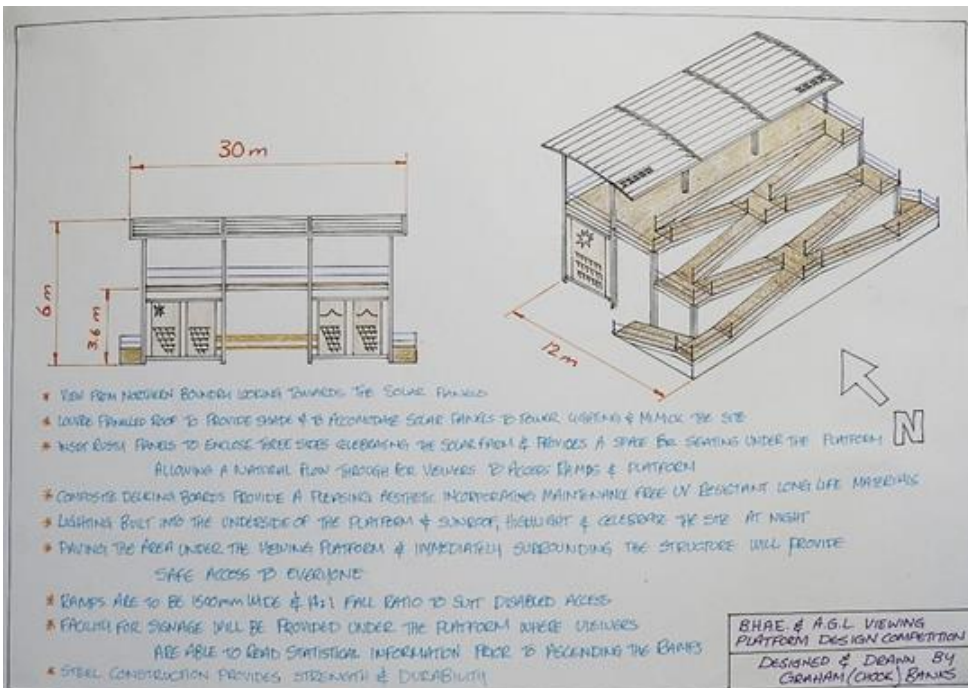 30 m
6 m
3.6 m
12 m
N
* VIEW FROM NORTHERN BOUNDRY LOOKING TOWARDS THE SOLAR PANELS
* LOUVRE PANELLED ROOF TO PROVIDE SHADE & TO ACCOMODATE SOLAR PANELS TO POWER LIGHTING & MIMICK THE SITE
* INSET RUSTY PANELS TO ENCLOSE THREE SIDES CELEBRATING THE SOLAR FARM & PROVIDES A SPACE FOR SEATING UNDER THE PLATFORM
ALLOWING A NATURAL FLOW THROUGH FOR VIEWERS TO ACCESS RAMPS & PLATFORM
* COMPOSITE DECKING BOARDS PROVIDE A PLEASING AESTHETIC INCORPORATING MAINTENANCE FREE UV RESISTANT LONG LIFE MATERIALS
* LIGHTING BUILT INTO THE UNDERSIDE OF THE PLATFORM & SUNROOF, HIGHLIGHT & CELEBRATE THE SITE AT NIGHT
* PAVING THE AREA UNDER THE VIEWING PLATFORM & IMMEDIATELY SURROUNDING THE STRUCTURE WILL PROVIDE
SAFE ACCESS TO EVERYONE
* RAMPS ARE TO BE 1500mm WIDE & 14:1 FALL RATIO TO SUIT DISABLED ACCESS
* FACILITY FOR SIGNAGE WILL BE PROVIDED UNDER THE PLATFORM WHERE VIEWERS
ARE ABLE TO READ STATISTICAL INFORMATION PRIOR TO ASCENDING THE RAMPS
* STEEL CONSTRUCTION PROVIDES STRENGTH & DURABILITY
BHAE. & A.G.L VIEWING
PLATFORM DESIGN COMPETITION
DESIGNED & DRAWN BY
GRAHAM (CHOOK) BANKS